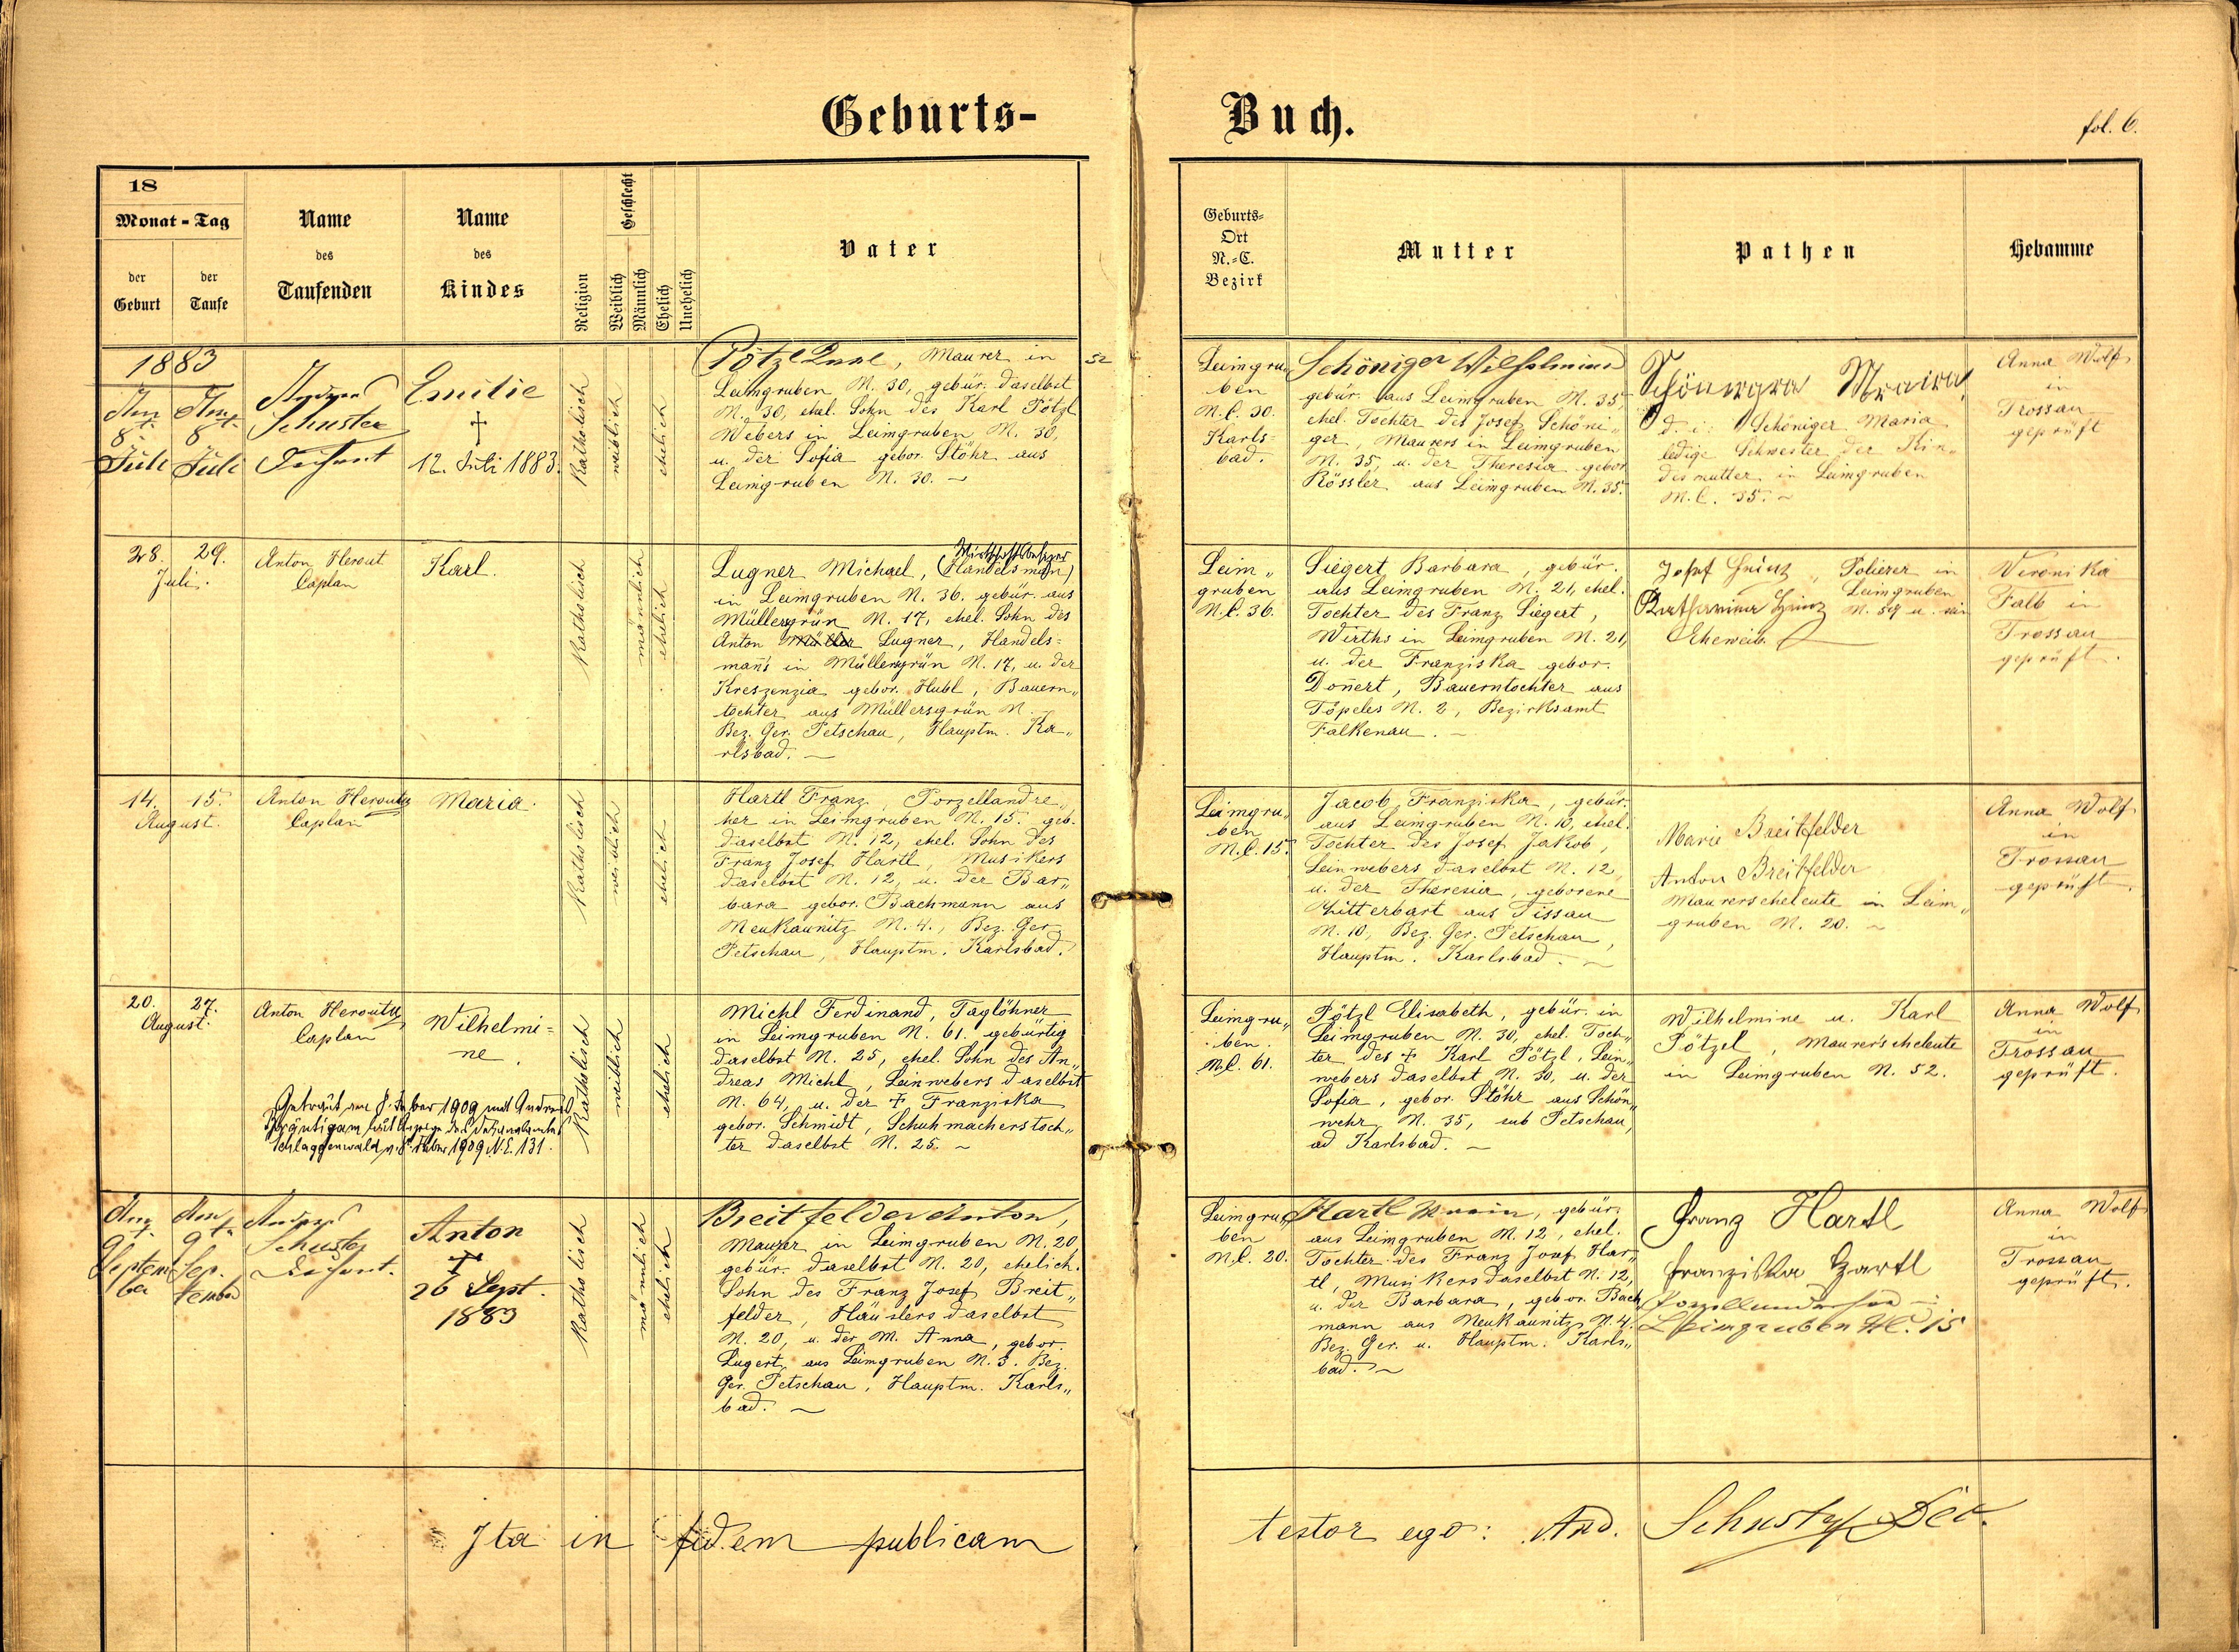 Geburts-
Buch.
fol. 6.
18
Monat - Tag
der Geburt
der Taufe
Name des Taufenden
Name des Kindes
Religion
Geschlecht
Weiblich
Männlich
Ehelich
Unehelich
Vater
Geburts-
Ort
N.-C.
Bezirk
Mutter
Pathen
Hebamme
1883
8.
Juli
8.
Juli
Schuster
Dechant
Emilie
†
12. Juli 1883.
Katholisch
weiblich
ehelich
Pötzl Karl, Maurer in
Leimgruben N. 30, gebür. daselbst
N. 30, ehel. Sohn des Karl Pötzl
Webers in Leimgruben N. 30,
u. der Sofia gebor. Stöhr aus
Leimgruben N. 30. ~
52
Leimgru„
ben
N.C. 30.
Karls-
bad.
Schöniger Wilhelmine
gebür. aus Leimgruben N. 35,
ehel. Tochter des Josef Schöni„
ger, Maurers in Leimgruben
N. 35, u. der Theresia gebor.
Rössler aus Leimgruben N. 35.
Schöniger Maria
d. i. Schöniger Maria
ledige Schwester der Kin„
desmutter in Leimgruben
N.C. 35. ~
Anna Wolf
in
Trossau
geprüft
28.
29.
Juli.
Anton Herout
Caplan
Karl.
Katholisch
männlich
ehelich
Wirtschaftsbesitzer
Lugner Michael, (Handelsmañ)
in Leimgruben N. 36. gebür. aus
Müllersgrün N. 17, ehel. Sohn des
Anton Müller Lugner, Handels=
mañs in Müllersgrün N. 17, u. der
Kreszenzia gebor. Hubl, Bauern„
tochter aus Müllersgrün N.
Bez. Ger. Petschau, Hauptm. Ka„
rlsbad. ~
Leim„
gruben
N.C. 36.
Siegert Barbara, gebür.
aus Leimgruben N. 21, ehel.
Tochter des Franz Siegert,
Wirths in Leimgruben N. 21,
u. der Franziska gebor.
Doñert, Bauerntochter aus
Töpeles N. 2, Bezirksamt
Falkenau. ~
Josef Heinz, Polierer in
Leimgruben
Katharina Heinz N. 59 u. sein
Eheweib.
Veronika
Falb in
Trossau
geprüft.
14.
15.
August.
Anton Heroutz
Caplan
Maria.
Katholisch
weiblich
ehelich
Hartl Franz, Porzellandre„
her in Leimgruben N. 15. geb.
daselbst N. 12, ehel. Sohn des
Franz Josef Hartl, Musikers
daselbst N. 12, u. der Bar„
bara gebor. Bachmann aus
Neukaunitz N. 4., Bez. Ger
Petschau, Hauptm. Karlsbad.
Leimgru„
ben
N.C. 15.
Jacob Franziska, gebür.
aus Leimgruben N. 10, ehel.
Tochter des Josef Jakob,
Leinwebers daselbst N. 12,
u. der Theresia, geborene
Zitterbart aus Tissau
N. 10, Bez. Ger. Petschau,
Hauptm. Karlsbad. ~
Marie Breitfelder
Anton Breitfelder
Maurerseheleute in Leim„
gruben N. 20. ~
Anna Wolf
in
Trossau
geprüft.
20.
27.
August.
Anton Heroutz
Caplan
Wilhelmi=
ne.
Katholisch
weiblich
ehelich
Getraut am 8. Feber 1909 mit Andreas
Bräutigam
Schlaggenwald 1909 N.E. 131.
Michl Ferdinand, Taglöhner
in Leimgruben N. 61. gebürtig
daselbst N. 25, ehel. Sohn des An„
dreas Michl, Leinwebers daselbst
N. 64, u. der † Franziska
gebor. Schmidt, Schuhmacherstoch„
ter daselbst N. 25. ~
Leimgru„
ben.
N.C. 61.
Pötzl Elisabeth, gebür. in
Leimgruben N. 30, ehel. Toch„
ter des † Karl Pötzl, Lein„
webers daselbst N. 30, u. der
Sofia, gebor. Stöhr aus Schön„
wehr, N. 35, sub Petschau,
ad Karlsbad. ~
Wilhelmine u. Karl
Pötzel, Maurerseheleute
in Leimgruben N. 52.
Anna Wolf
in
Trossau
geprüft.
9t.
Septem
ber
9t.
Sep.
tember
Schuster
Dechant.
Anton
†
26 Sept.
1883
Katholisch
männlich
ehelich
Breitfelder Anton,
Maurer in Leimgruben N. 20
gebür. daselbst N. 20, ehelich.
Sohn des Franz Josef Breit„
felder, Häuslers daselbst
N. 20, u. der M. Anna, gebor.
Lugert aus Leimgruben N. 3. Bez.
Ger. Petschau, Hauptm. Karls„
bad. ~
Leimgru„
ben
N.C. 20.
Hartl Maria, gebür.
aus Leimgruben N. 12, ehel.
Tochter des Franz Josef Har„
tl, Musikers daselbst N. 12,
u. der Barbara, gebor. Bach
mann aus Neukaunitz N. 4.
Bez. Ger. u. Hauptm. Karls„
bad. ~
Franz Hartl
Franziska Hartl
Porzellandreher in
Leimgruben N.C. 15
Anna Wolf
in
Trossau
geprüft.
Ita in fidem publicam
testor ego: And. Schuster Dec.